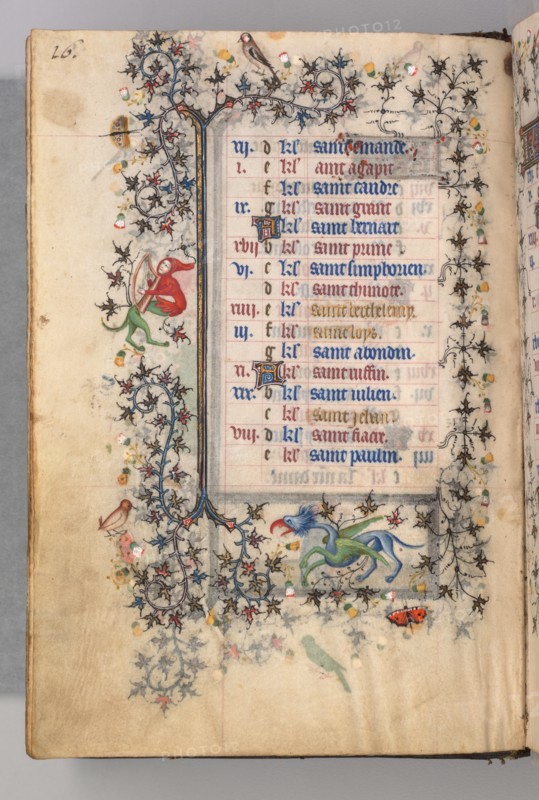 26.
xvj. d kl' saint mande.
v. e kl' aint agapit
f kl' saint candre
ix. g kl' saint grant
A kl' saint bernart
xvij b kl' saint prime
vi. c kl' saint simphorien.
d kl' saint thimote.
xiiij. e kl' saint berthelemy.
iij. f kl' saint loys.
g kl' saint abondin.
xi. A kl' saint ruffin.
xix. b kl' saint iulien.
c kl' saint jehan
viij. d kl' saint fiacre.
e kl' saint paulin.
PHOTO12
PHOTO12